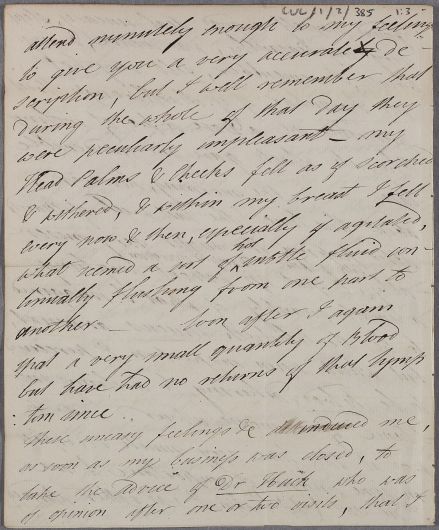 CUL/1/2/385 1:3
attend minutely enough to my feelings
to give you a very accurate de-
scription, but I well remember that
during the whole of that Day they
were peculiarly unpleasant – my
Head Palms & Cheeks felt as if scorched
& withered, & within my breast I felt
every now & then, especially if agitated,
what seemed a sort of hot subtle fluid con-
tinually flushing from one part to
another. — Soon after, I again
spat a very small quantity of Blood
but have had no returns of that symp
tom since.
These uneasy feelings &c induced me,
as soon as my business was closed, to
take the advice of Dr Huck who was
of opinion after one or two visits, that I